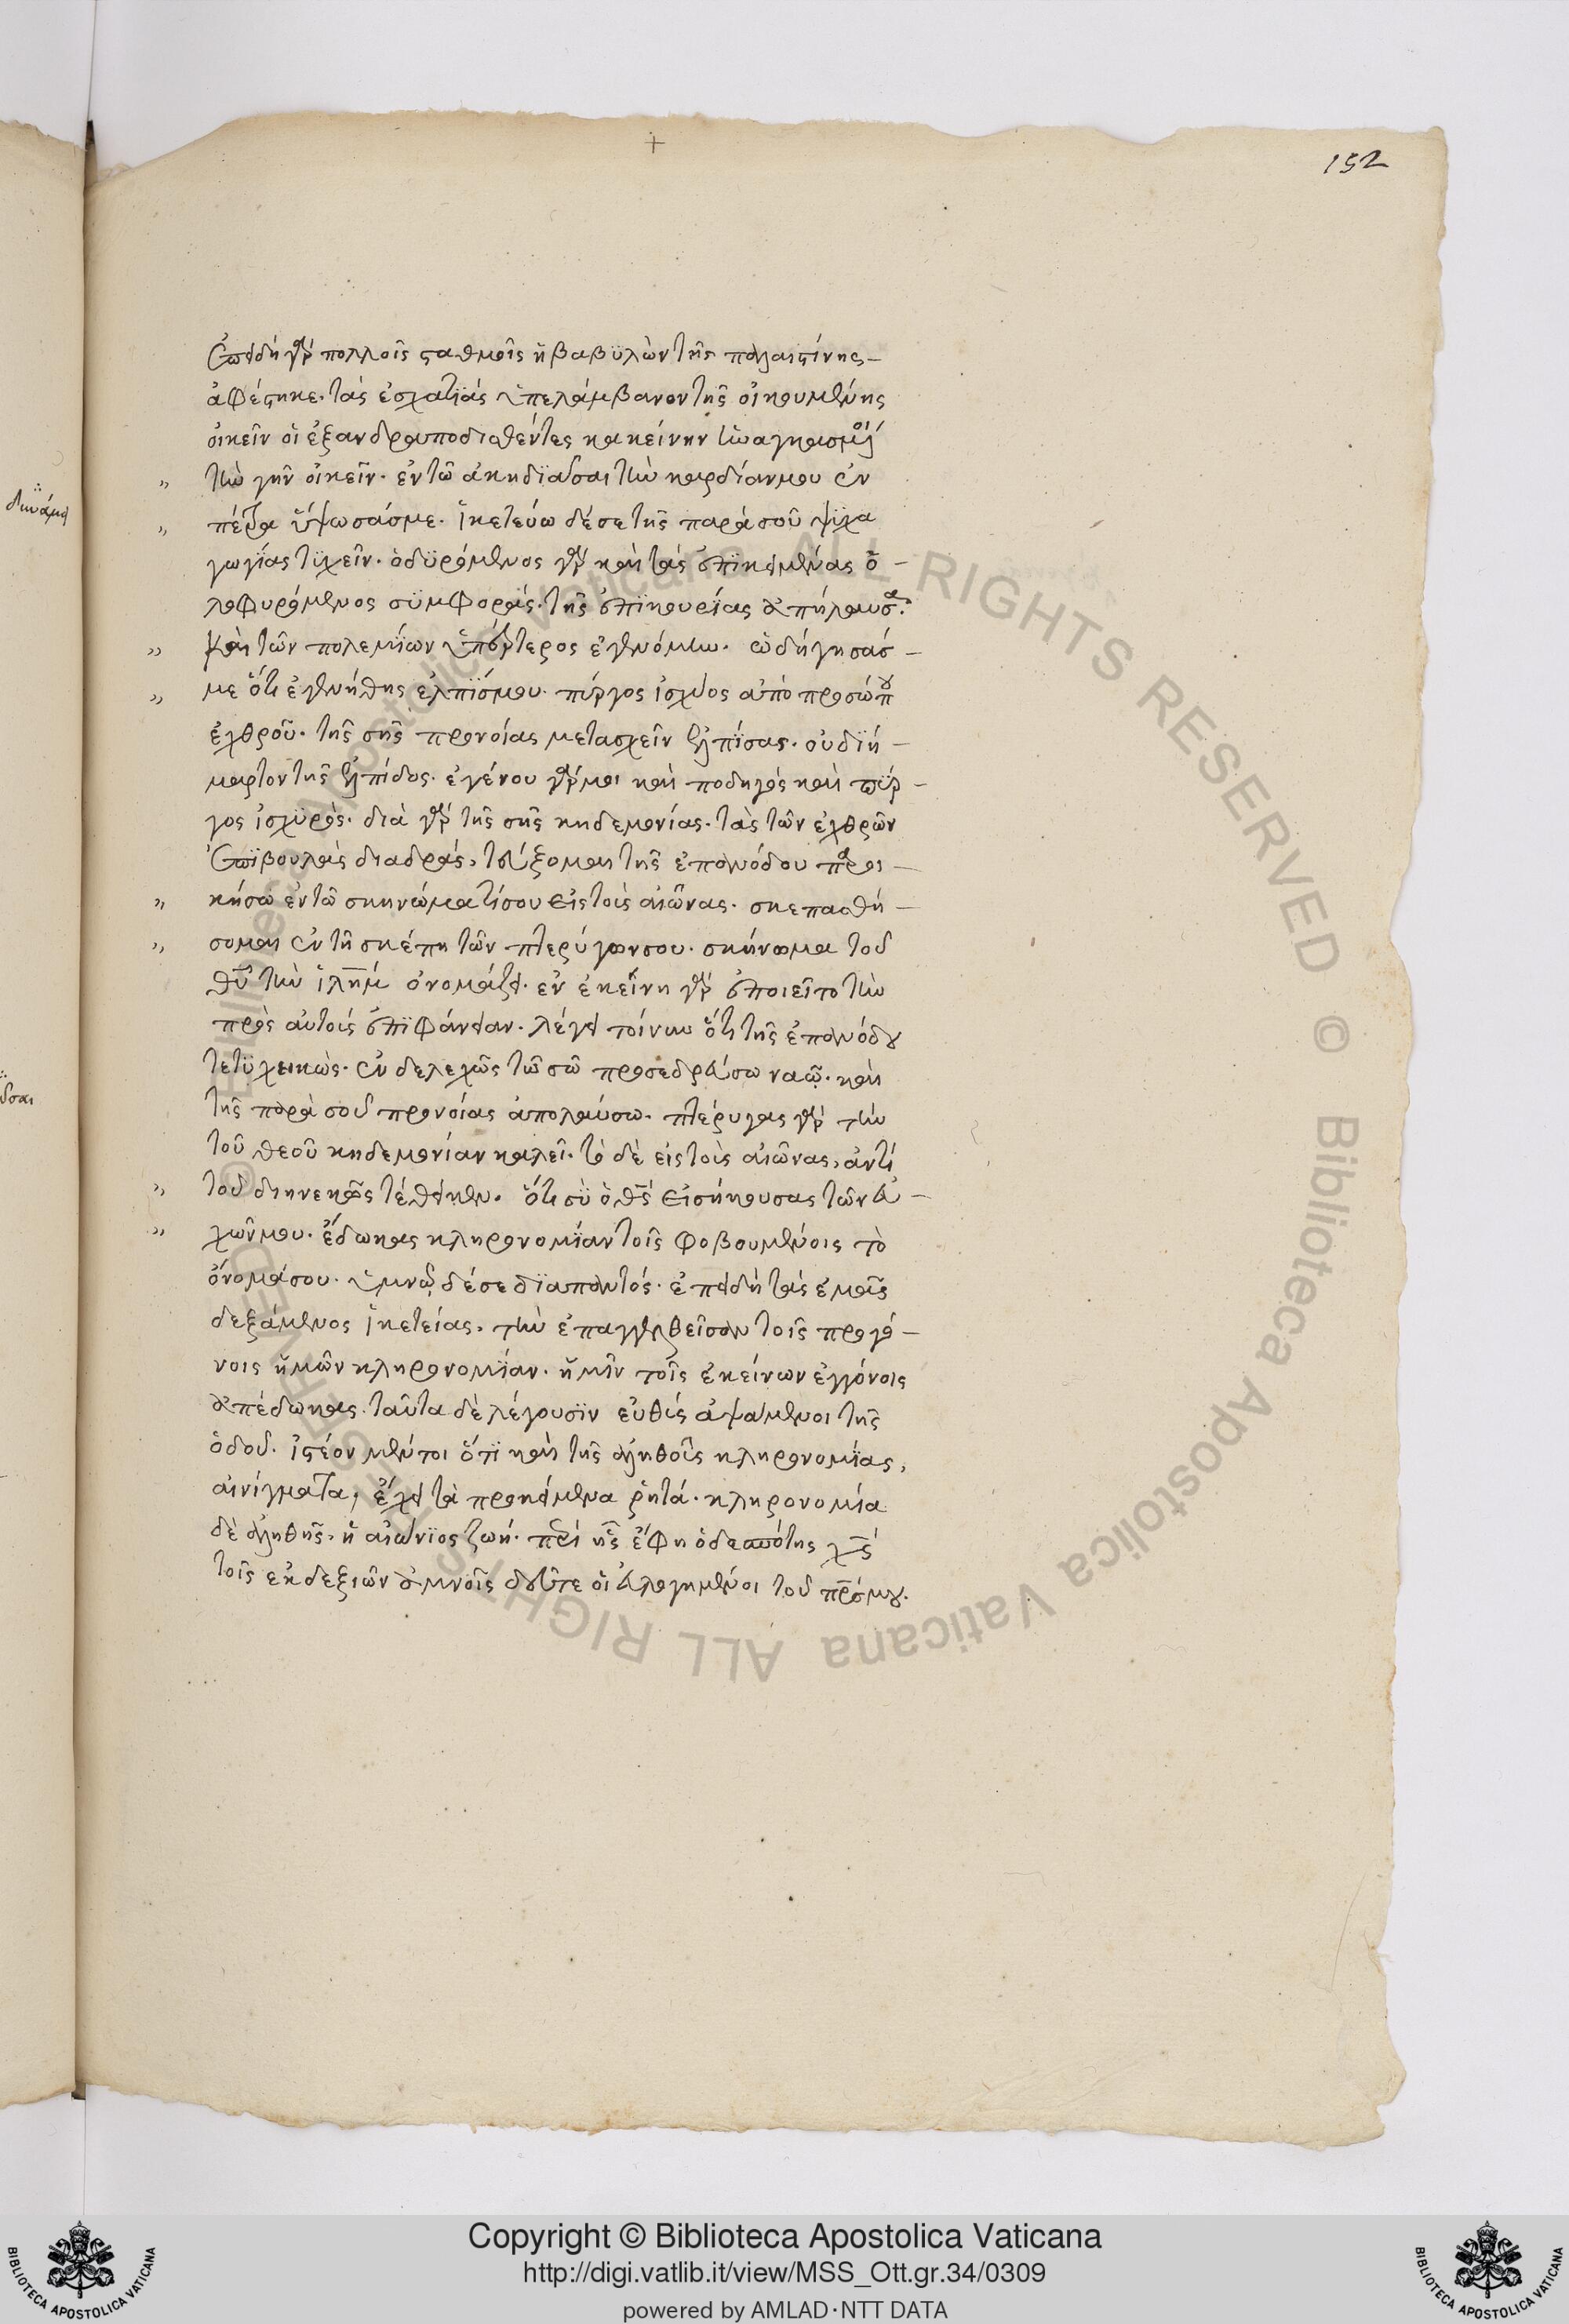 152
ἐπειδὴ γὰρ πολλοῖς σταθμοῖς ἡ βαβϋλὼν τῆς παλαιστίνης –
ἀφέστηκε· τὰς ἐσχατϊὰς ὑπελάμβανον τῆς οἰκουμένης
οἰκεῖν οἱ ἐξανδραποδισθέντες κακείνην
τὴν γῆν οἰκεῖν· ἐν τῶ ἀκηδϊάσαι τὴν καρδίαν μου ἐν
πέτρα ὕψωσάς με· ἱκετεύω δέ σε τῆς παρὰ σοῦ ψϋχα
γωγΐας τϋχεῖν· ὀδϋρόμενος γὰρ καὶ τὰς ἐπϊκειμένας ὀ –
λοφυρόμενος σϋμφοράς· τῆς ἐπϊκουρΐας ἀπήλαυσα·
καὶ τῶν πολεμΐων ὑπέρτερος ἐγενόμην· ὡδήγησάσ –
με ὅτι ἐγενήθης ἐλπΐς μου· πύργος ἰσχύος ἀπὸ προσώπου
ἐχθροῦ· τῆς σῆς προνοίας μετασχεῖν ἐλπΐσας· οὐ δϊή –
μαρτον τῆς ἐλπίδος· ἐγένου γάρ μοι καὶ ποδηγὸς καὶ πύρ –
γος ἰσχϋρός· διὰ γὰρ τῆς σῆς κηδεμονίας· τὰς τῶν ἐχθρῶν
ἐπϊβουλὰς διαδρὰς, τεύξομαι τῆς ἐπανόδου παροι –
κήσω ἐν τῶ σκηνώματί σου εἰς τοὺς αἰῶνας· σκεπασθή –
σομαι ἐν τῆ σκέπη τῶν πτερύγων σου· σκήνωμα τοῦ
θῦ τὴν ἱλὴμ ὀνομάζει· ἐν ἐκείνη γὰρ ἐποιεῖτο τὴν
πρὸς αὐτοὺς ἐπϊφάνειαν· λέγει τοίνυν ὅτι τῆς ἐπανόδου
τετϋχηκὼς· ἐνδελεχῶς τῶ σῶ προσεδρεύσω ναῷ· καὶ
τῆς παρὰ σοῦ προνοίας ἀπολαύσω· πτέρυγας γὰρ τὴν
τοῦ θεοῦ κηδεμονίαν καλεῖ· τὸ δὲ εἰς τοὺς αἰῶνας, ἀντὶ
τοῦ διηνεκῶς τέθεικεν· ὅτι σὺ ὁ θς εἰσήκουσας τῶν εὐ –
χῶν μου· ἔδωκας κληρονομΐαν τοῖς φοβουμένοις τὸ
ὄνομά σου· ὑμνῶ δέ σε δϊαπαντός· ἐπειδὴ τὰς ἐμὰς
δεξάμενος ἱκετείας, τὴν ἐπαγγελθεῖσαν τοῖς προγό –
νοις ἡμῶν κληρονομΐαν· ἡμῖν τοῖς ἐκείνων ἐγγόνοις
ἀπέδωκας· ταῦτα δὲ λέγουσϊν εὐθὺς ἁψάμενοι τῆς
ὁδοῦ· ἰστέον μέντοι ὅτϊ καὶ τῆς ἀληθοῦς κληρονομΐας,
αἰνίγματα, ἔχει τὰ προκείμενα ῥητά· κληρονομία
δὲ ἀληθὴς, ἡ αἰώνϊος ζωή· περὶ ἧς ἔφη ὁ δεσπότης χς
τοῖς ἐκ δεξιῶν ἀμνοῖς δεῦτε οἱ εὐλογημένοι τοῦ πρς μου·